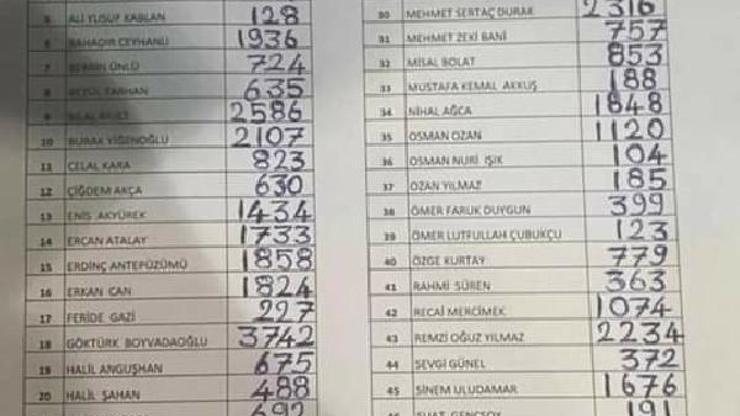 5 ALİ YUSUF KABLAN 128
6 BAHADIR CEYHANLI 1936
7 BERRİN ÜNLÜ 724
8 635
9 BİLAL 2586
10 BURAK YİĞENOĞLU 2107
11 CELAL KARA 823
12 ÇİĞDEM AKÇA 630
13 ENİS AKYÜREK 1434
14 ERCAN ATALAY 1733
15 ERDİNÇ ANTEPÜZÜMÜ 1858
16 ERKAN CAN 1824
17 FERİDE GAZİ 227
18 GÖKTÜRK BOYVADAOĞLU 3742
19 HALİL ANGUŞHAN 675
20 HALİL ŞAHAN 488
692
30 MEHMET SERTAÇ DURAK 2316
31 MEHMET ZEKİ BANİ 757
32 MİSAL BOLAT 853
33 MUSTAFA KEMAL AKKUŞ 188
34 NİHAL AĞCA 1848
35 OSMAN OZAN 1120
36 OSMAN NURİ IŞIK 104
37 OZAN YILMAZ 185
38 ÖMER FARUK DUYGUN 399
39 ÖMER LUTFULLAH ÇUBUKÇU 123
40 ÖZGE KURTAY 779
41 RAHMİ SÜREN 363
42 RECAİ MERCİMEK 1074
43 REMZİ OĞUZ YILMAZ 2234
44 SEVGİ GÜNEL 372
45 SİNEM ULUDAMAR 1676
SUAT GENÇSOY 191